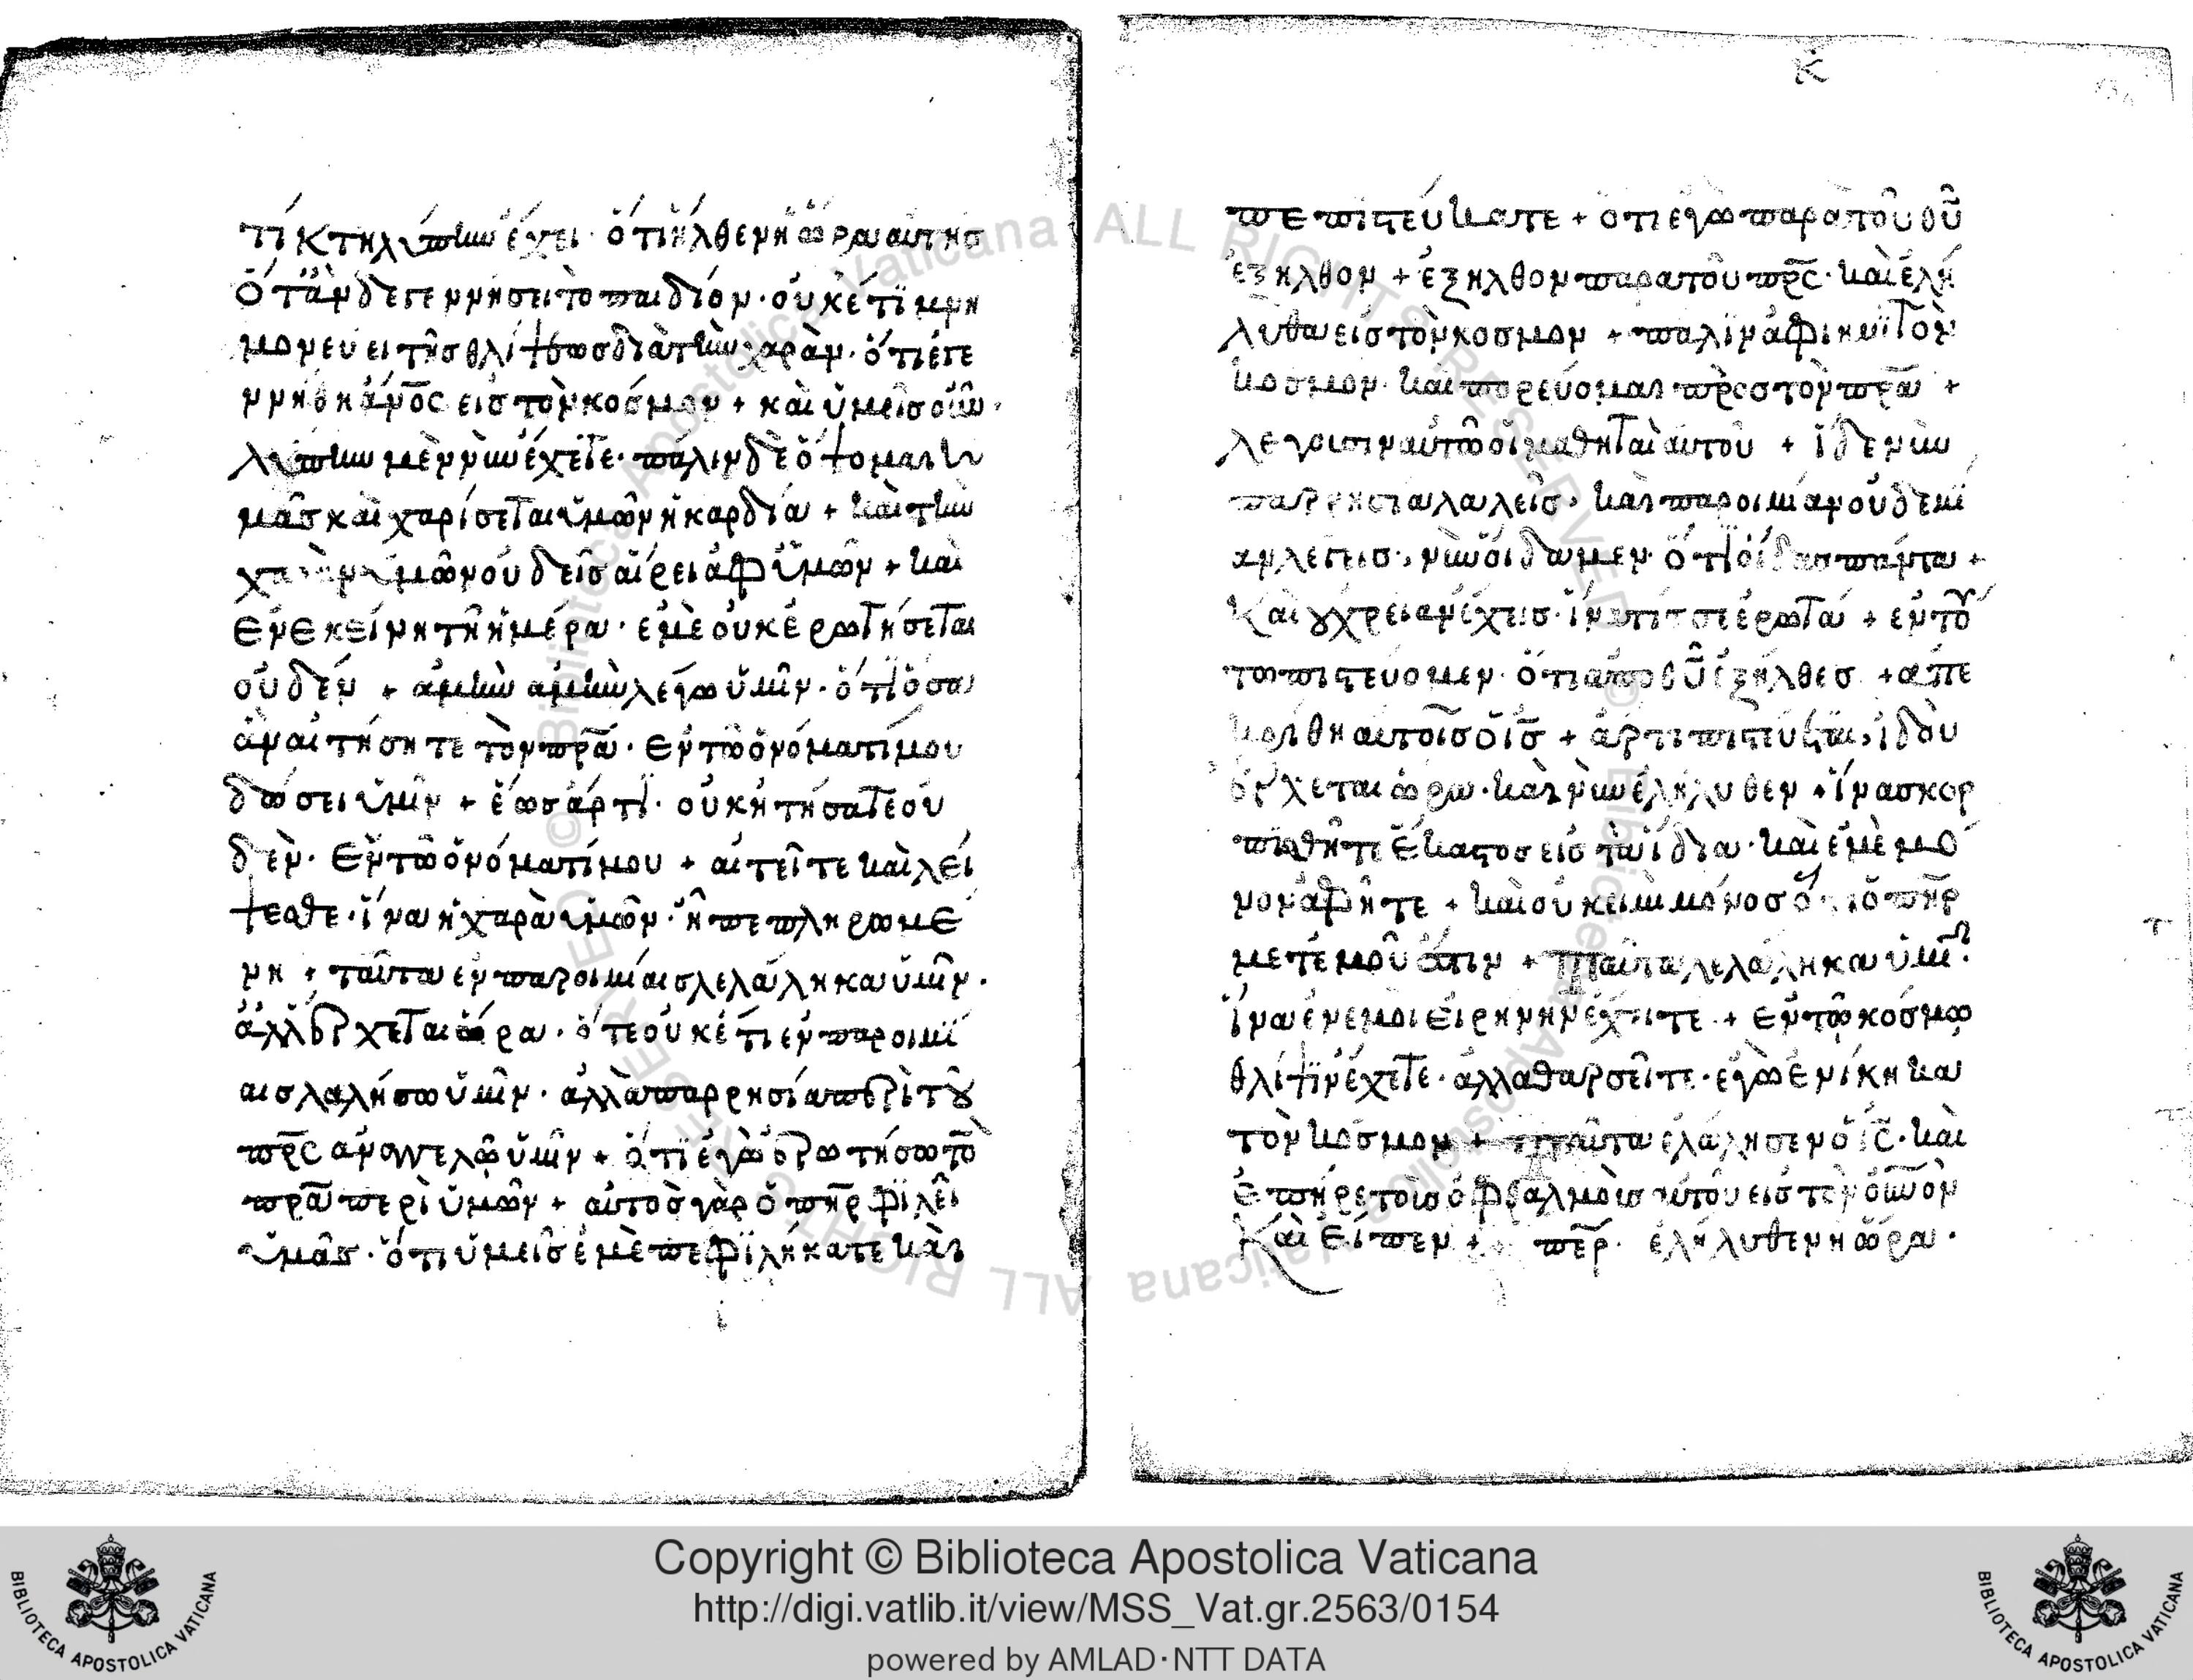 τίκτη λύπην ἔχει· ὅτι ἦλθεν ἡ ὥρα αὐτῆσ
ὅτἂν δὲ γεννήσει τὸ παιδίον· οὐκέτϊ μνη
μονεύει τῆσ θλίψεωσ διὰ τὴν χαρὰν· ὅτι ἐγε
ννήθη ἄν̅ο̅ς εἰσ τὸν κόσμον + καὶ ὑμεῖσ οὖν·
λύπην μὲν νὺν ἔχετε· πάλιν δὲ ὄψομαι ὑ
μᾶσ καὶ χαρίσεται ὑμῶν ἡ καρδία + καὶ τὴν
χαρὰν ὑμῶν οὐδεῖσ αἴρει ἀφ ὑμῶν + καὶ
ἐν ἐκείνη τῆ ἡμέρα· ἐμὲ οὐκ ἐρωτήσεται
οὐδέν + ἀμὴν ἀμὴν λέγω ὑμῖν· ὅτϊ ὅσα
ἂν αἰτήσητε τὸν πρ̅α· ἐν τῶ ὀνόματί μου
δώσει ὑμῖν + ἕωσ ἄρτϊ· οὐκ ἠτήσατε οὐ
δὲν· ἐν τῶ ὀνόματί μου + αἰτεῖτε καὶ λεί
ψεσθε· ἵνα ἡ χαρὰ ὑμῶν· ἦ πεπληρωμέ
νη + ταῦτα ἐν παροιμίαισ λελάληκα ὑμῖν·
ἀλλ ἔρχεται ὥρα· ὅτε οὐκέτι ἐν παροιμϊ
αισ λαλήσω ὑμῖν· ἀλλὰ παρρησία περὶ τοῦ
πρ̅ς ἀναγγελῶ ὑμῖν + ὅτϊ ἐγὼ ἐρωτήσω τὸ
πρ̅α περὶ ὑμῶν + αὐτὸσ γὰρ ὁ πη̅ρ φϊλεῖ
ὑμᾶσ· ὅτι ὑμεῖσ ἐμὲ πεφϊλήκατε καὶ
Κ
πεπιστεύκατε + ὅτι ἐγὼ παρὰ τοῦ θ̅υ
ἐξῆλθον + ἐξῆλθον παρὰ τοῦ πρ̅ς· καὶ ἐλή
λυθα εἰσ τὸν κόσμον + πάλϊν ἀφίημϊ τὸν
κόσμον· καὶ πορεύομαι πρὸσ τὸν πρ̅α +
λέγουσιν αὐτῶ οἱ μαθηταὶ αὐτοῦ + ἴδε νὺν
παρρησία λαλεῖσ· καὶ παροιμίαν οὐδεμί
αν λέγεισ· νὺν οἴδαμεν· ὅτϊ οἶδασ πάντα +
καὶ οὐ χρείαν ἔχεισ· ἵνα τίσ σε ἐρωτᾶ + ἐν τού
τω πιστεύομεν· ὅτι ἀπο θ̅υ ἐξῆλθεσ + ἀπε
κρίθη αὐτοῖσ ὁ ι̅σ + ἄρτι πιστεύεται, ἰδοὺ
ἔρχεται ὥρα· καὶ νὺν ἐλήλυθεν + ἵνα σκορ
πισθῆτε ἕκαστοσ εἰσ τὰ ἴδια· καὶ ἐμὲ μό
νον ἀφῆτε + καὶ οὐκ εἰμὶ μόνοσ ὅτι ὁ πη̅ρ
μετ ἐμοῦ ἐστιν + Ταῦτα λελάληκα ὑμῖν·
ἵνα ἐν ἐμοὶ εἰρήνην ἔχητε + ἐν τῶ κόσμω
θλίψϊν ἔχετε· ἀλλα θαρσεῖτε· ἐγὼ ἐνίκηκα
τὸν κόσμον + Ταῦτα ἐλάλησεν ὁ ι̅ς· καὶ
ἐπῆρε τοὶσ ὀφθαλμοὶσ αὐτοῦ εἰσ τὸν ου̅νον
καὶ εἶπεν + πε̅ρ· ἐλήλυθεν ἡ ὥρα·
Copyright © Biblioteca Apostolica Vaticana
http://digi.vatlib.it/view/MSS_Vat.gr.2563/0154
powered by AMLAD·NTT DATA
BIBLIOTECA APOSTOLICA VATICANA
BIBLIOTECA APOSTOLICA VATICANA